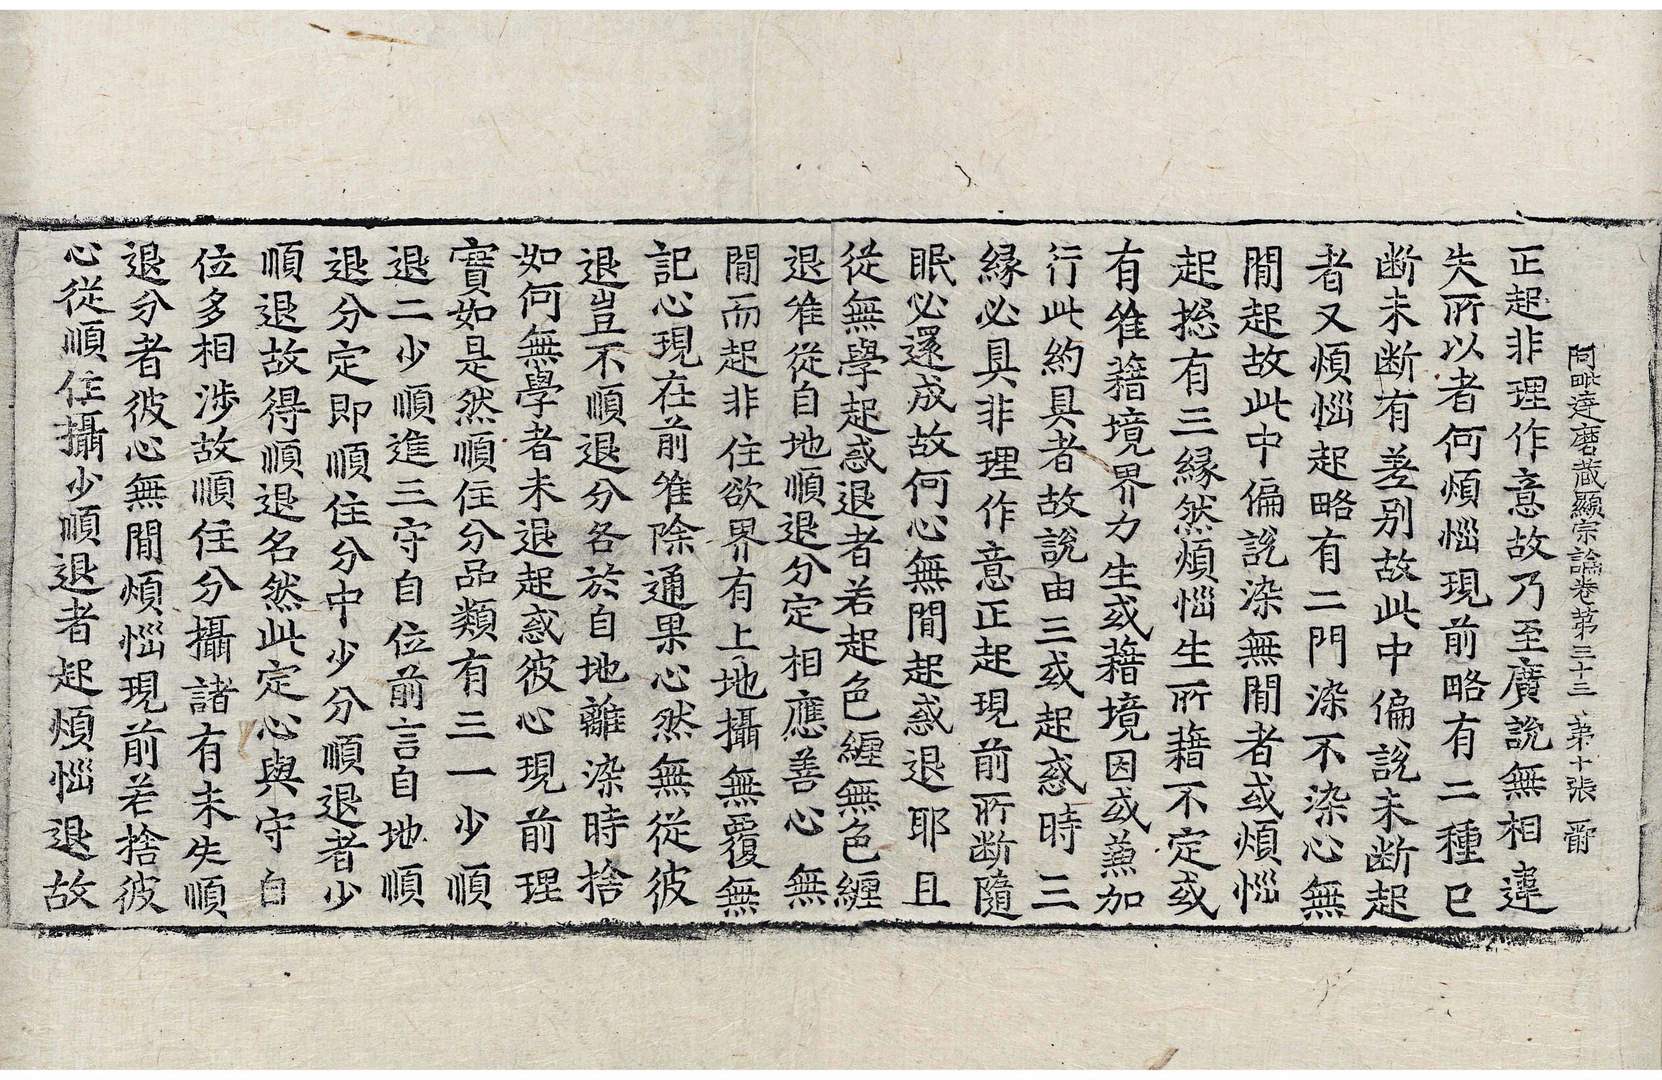 阿毗達磨藏顯宗論卷第三十三 第十張 爵
正起非理作意故乃至廣說無相違
失所以者何煩惱現前略有二種已
断未断有差别故此中偏說未断起
者又煩惱起略有二門染不染心無
閒起故此中偏說染無閒者或煩惱
起揔有三緣然煩惱生所藉不定或
有唯藉境界力生或藉境因或兼加
行此約具者故說由三或起惑時三
緣必具非理作意正起現前所断隨
眠必還成故何心無閒起惑退耶且
從無學起惑退者若起色纏無色纏
退唯從自地順退分定相應善心無
閒而起非住欲界有上地攝無覆無
記心現在前唯除通果心然無從彼
退豈不順退分各於自地離染時捨
如何無學者未退起惑彼心現前理
實如是然順住分品類有三一少順
退二少順進三守自位前言自地順
退分定即順住分中少分順退者少
順退故得順退名然此定心與守自
位多相涉故順住分攝諸有未失順
退分者彼心無閒煩惱現前若捨彼
心從順住攝少順退者起煩惱退故